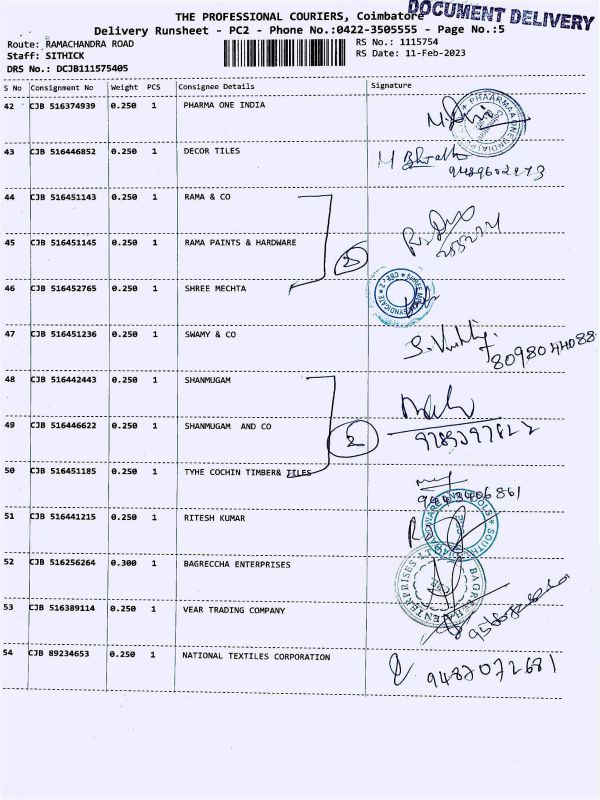 THE PROFESSIONAL COURIERS, Coimbatore
DOCUMENT DELIVERY
Delivery Runsheet - PC2 - Phone No.:0422-3505555 - Page No.:5
Route: RAMACHANDRA ROAD
RS No.: 1115754
Staff: SITHICK
RS Date: 11-Feb-2023
DRS No.: DCJB111575405
S No Consignment No Weight PCS Consignee Details Signature
42 CJB 516374939 0.250 1 PHARMA ONE INDIA
43 CJB 516446852 0.250 1 DECOR TILES
44 CJB 516451143 0.250 1 RAMA & CO
45 CJB 516451145 0.250 1 RAMA PAINTS & HARDWARE
46 CJB 516452765 0.250 1 SHREE MECHTA
47 CJB 516451236 0.250 1 SWAMY & CO
8098044088
48 CJB 516442443 0.250 1 SHANMUGAM
49 CJB 516446622 0.250 1 SHANMUGAM AND CO
2
50 CJB 516451185 0.250 1 TYHE COCHIN TIMBER& TILES
51 CJB 516441215 0.250 1 RITESH KUMAR
52 CJB 516256264 0.300 1 BAGRECCHA ENTERPRISES
53 CJB 516389114 0.250 1 VEAR TRADING COMPANY
54 CJB 89234653 0.250 1 NATIONAL TEXTILES CORPORATION
9487072681